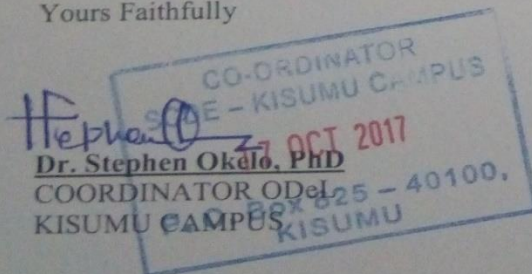 Yours Faithfully
CO-ORDINATOR
E - KISUMU CAMPUS
OCT 2017
Dr. Stephen Okelo, PhD
COORDINATOR ODeL
KISUMU CAMPUS
BOX 825 - 40100,
KISUMU